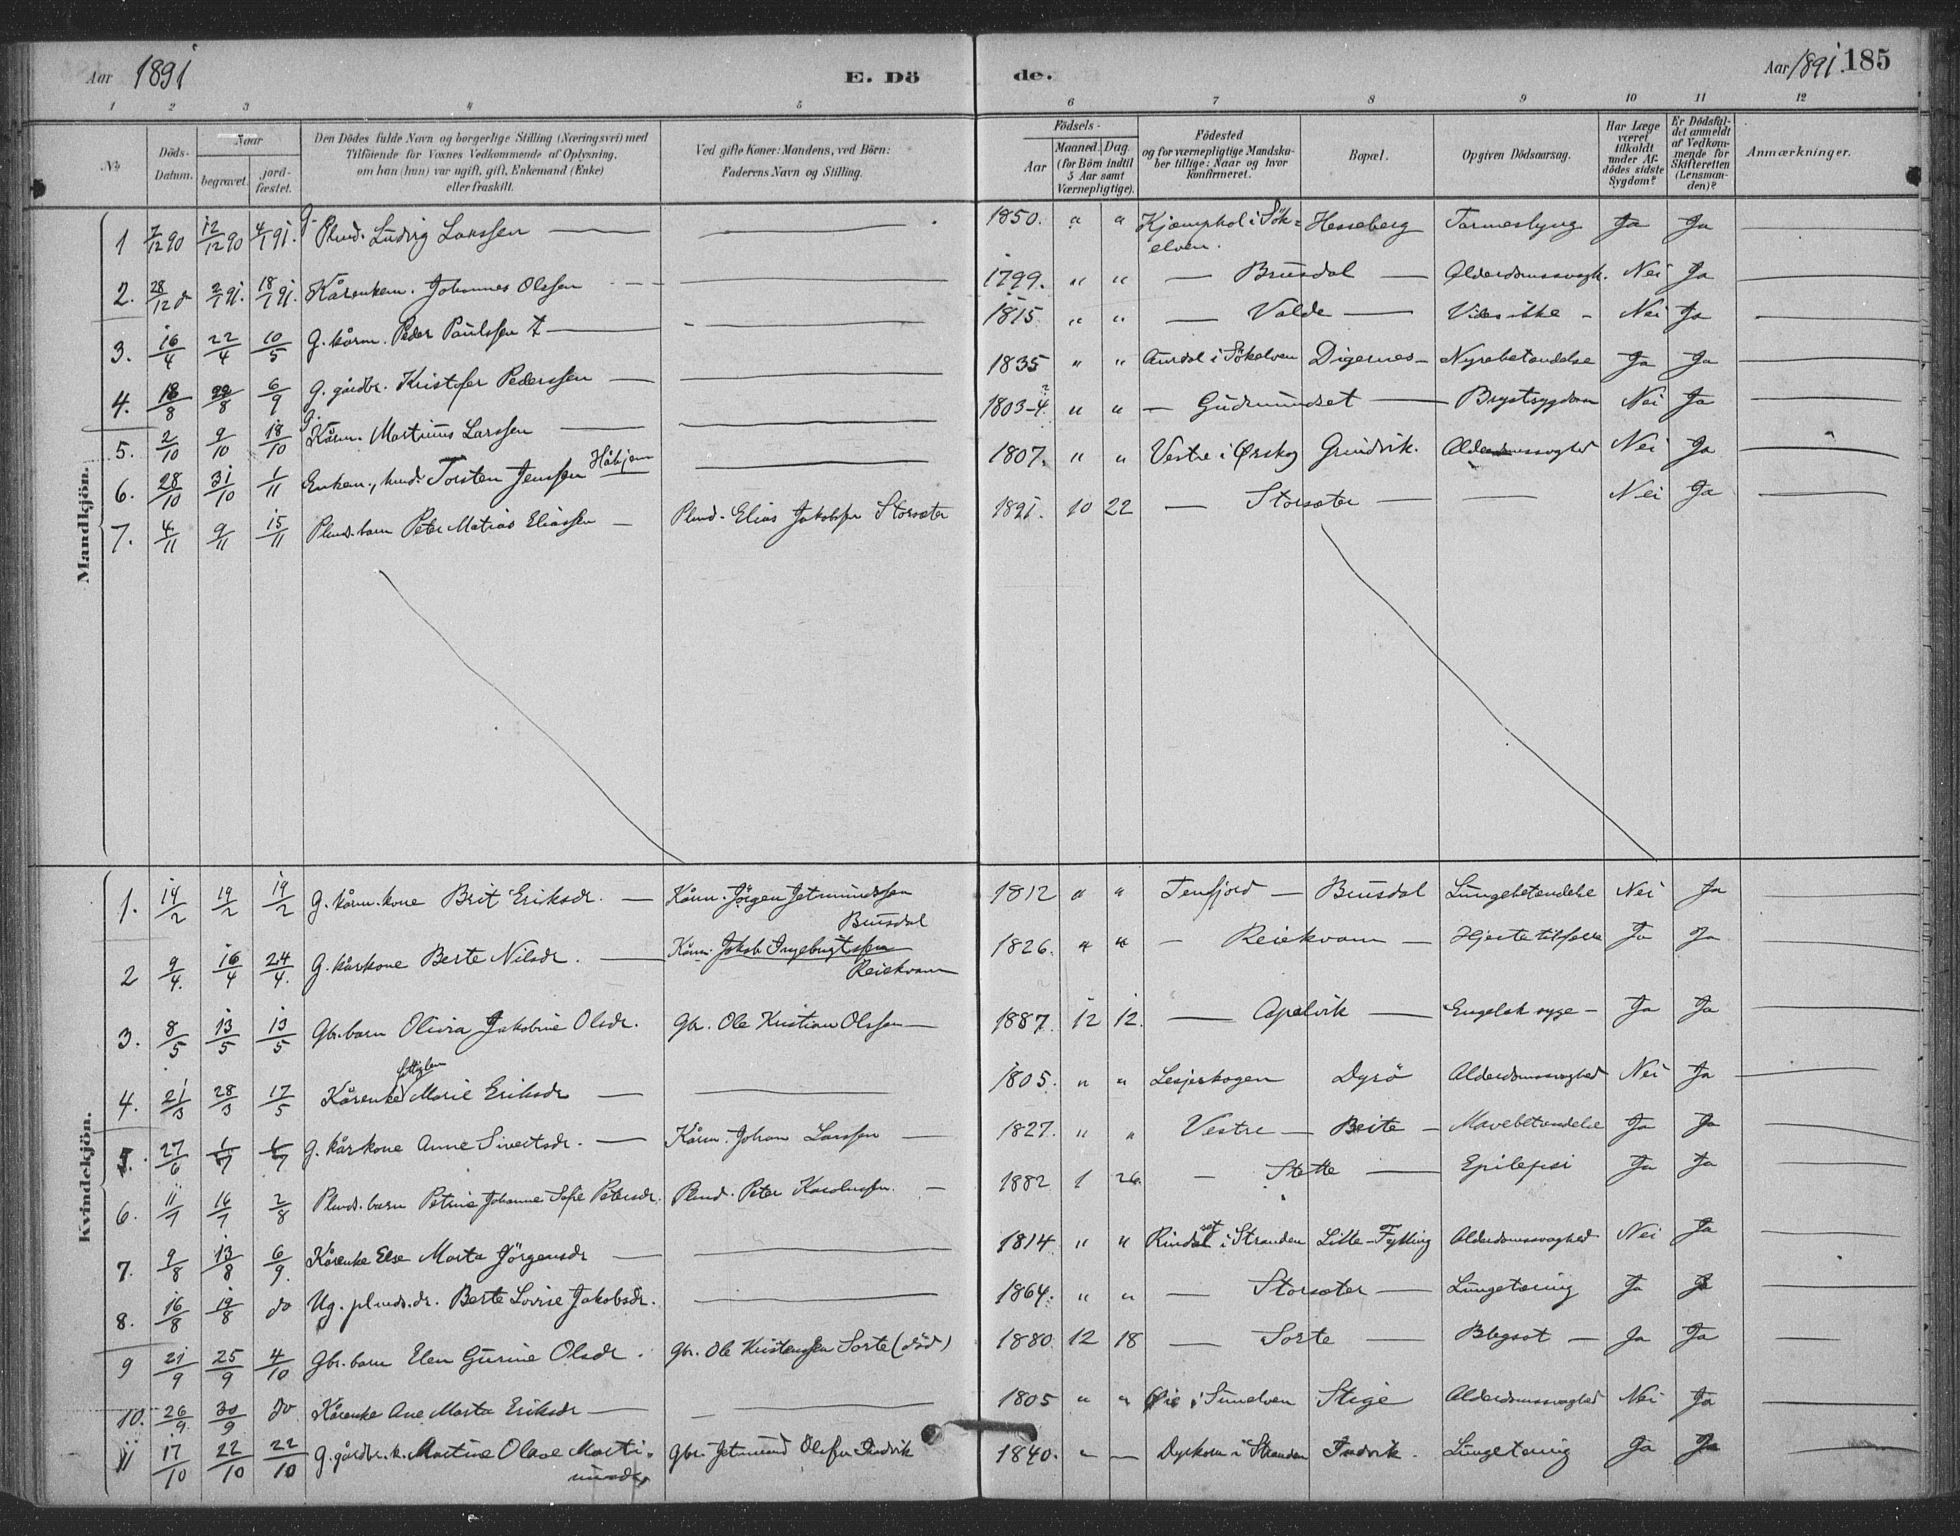 Aar 1891 E. Dö de. Aar 1891. 185
1 2 3 4 5 6 7 8 9 10 11 12
No Döds-Datum. Naar begravet. jord-fæstet. Den Dödes fulde Navn og borgerlige Stilling (Næringsvei) med Tilföiende for Voxnes Vedkommende af Oplysning, om han (hun) var ugift, gift, Enkemand (Enke) eller fraskilt. Ved gifte Koner: Mandens, ved Börn: Faderens Navn og Stilling. Födsels- Aar Maaned. Dag. (for Börn indtil 5 Aar samt Værnepligtige). Födested og for værnepligtige Mandska-ber tillige: Naar og hvor Konfirmeret. Bopæl. Opgiven Dödsaarsag. Har Læge været tilkaldt under Af-dödes sidste Sygdom? Er Dödsfal-det anmeldt af Vedkom-mende for Skifteretten (Lensman-den)? Anmærkninger.
Mandkjön.
1 7/12 90 12/12 90 4/1 91. G. Plmd. Ludvig Larssen — — 1850. " " Kjæmphol i Sök=elven. Hesseberg Tarmeslyng Ja Ja —
2. 28/12 d 2/1 91. 18/1 91. Kårenkem. Johannes Olssen — — 1799. " " — Brusdal — Alderdomssvagh. Nei Ja —
3. 16/4 22/4 10/5 G. kårm. Peder Paulssen — — 1815. " " — Valde — Vides ikke - Nei Ja —
4. 18/8 22/8 6/9 G. gårdbr. Kristofer Pederssen — — 1835 " " Aurdal i Sökelven Digernes — Nyrebetændelse Ja Ja —
5. 2/10 9/10 18/10 G. Kårm. Martinus Larssen — — 1803-4? " " — Gudmundset — Brystsygdom Nei Ja —
6. 28/10 31/10 1/11 Enkem., Torsten Jenssen Håhjem — 1807. " " Vestre i Ørskog Grindvik. Alderdomssvaghed Nei Ja —
7. 4/11 9/11 15/11 Plmds. barn Peter Matias Eliassen — Plmd. Elias Jakobssen Storsæter 1891. 10 22 — Storsæter — — Nei Ja —
Kvindekjön.
1. 14/2 19/2 19/2 G. kårm. kone Brit Eriksdr. — Kårm. Jörgen Jetmundssen Brusdal 1812 " " Tenfjord — Brusdal Lungebetændelse Nei Ja
2 9/4. 16/4 24/4. G. kårkone Berte Nilsdr. — Kårm. Jakob Ingebrigtssen Reiekvam 1826. " " — Reiekvam — Hjertetilfælde Ja Ja —
3. 8/5 13/5 13/5 Gbr. barn Olivia Jakobine Olsdr. Gbr. Ole Kristian Olssen — 1887. 12 12. — Apalvik — Engelsk syge — Ja Ja —
4. 21/3 28/3 17/5 Kårenke fattiglem Marie Eriksdr — — 1805. " " Lesjeskogen Dyrö Alderdomssvaghed Nei Ja —
5. 27/6 1/7 1/7 G. kårkone Anne Sivertsdr. — Kårm. Johan Larssen — 1827. " " Vestre — Beite — Mavebetændelse Ja Ja —
6. 11/7 16/7 2/8 Plmds. barn Petrine Johanne Sofie Petersdr. Plmd. Peter Karolussen. — 1882 1 26. — Stette — Epilepsi Ja Ja —
7. 9/8 13/8 6/9. Kårenke Else Marta Jörgensdr — — 1814 " " Rindalset i Stranden Lille-Fylling Alderdomssvaghed Nei Ja —
8. 16/8 19/8 do Ug. plmds. dr. Berte Lovise Jakobsdr. — 1864. " " — Storsæter — Lungetæring Ja Ja —
9 21/9 25/9 4/10 Gbr. barn Elen Gurine Olsdr. Gbr. Ole Kristenssen Sorte (död) 1880. 12 18 — Sorte — Blegsot — Ja Ja —
10. 26/9. 30/9 do Kårenke Ane Marta Eriksdr — — 1805 " " Øie i Sunelven Stige Alderdomssvaghed Nei Ja —
11 17/10 22/10 22/10 G. gårdbr. k. Martine Olave Martinusdr, Gbr. Jetmund Olssen Indvik 1840. " — Dyrkorn i Stranden Indvik. Lungetæring Ja Ja —